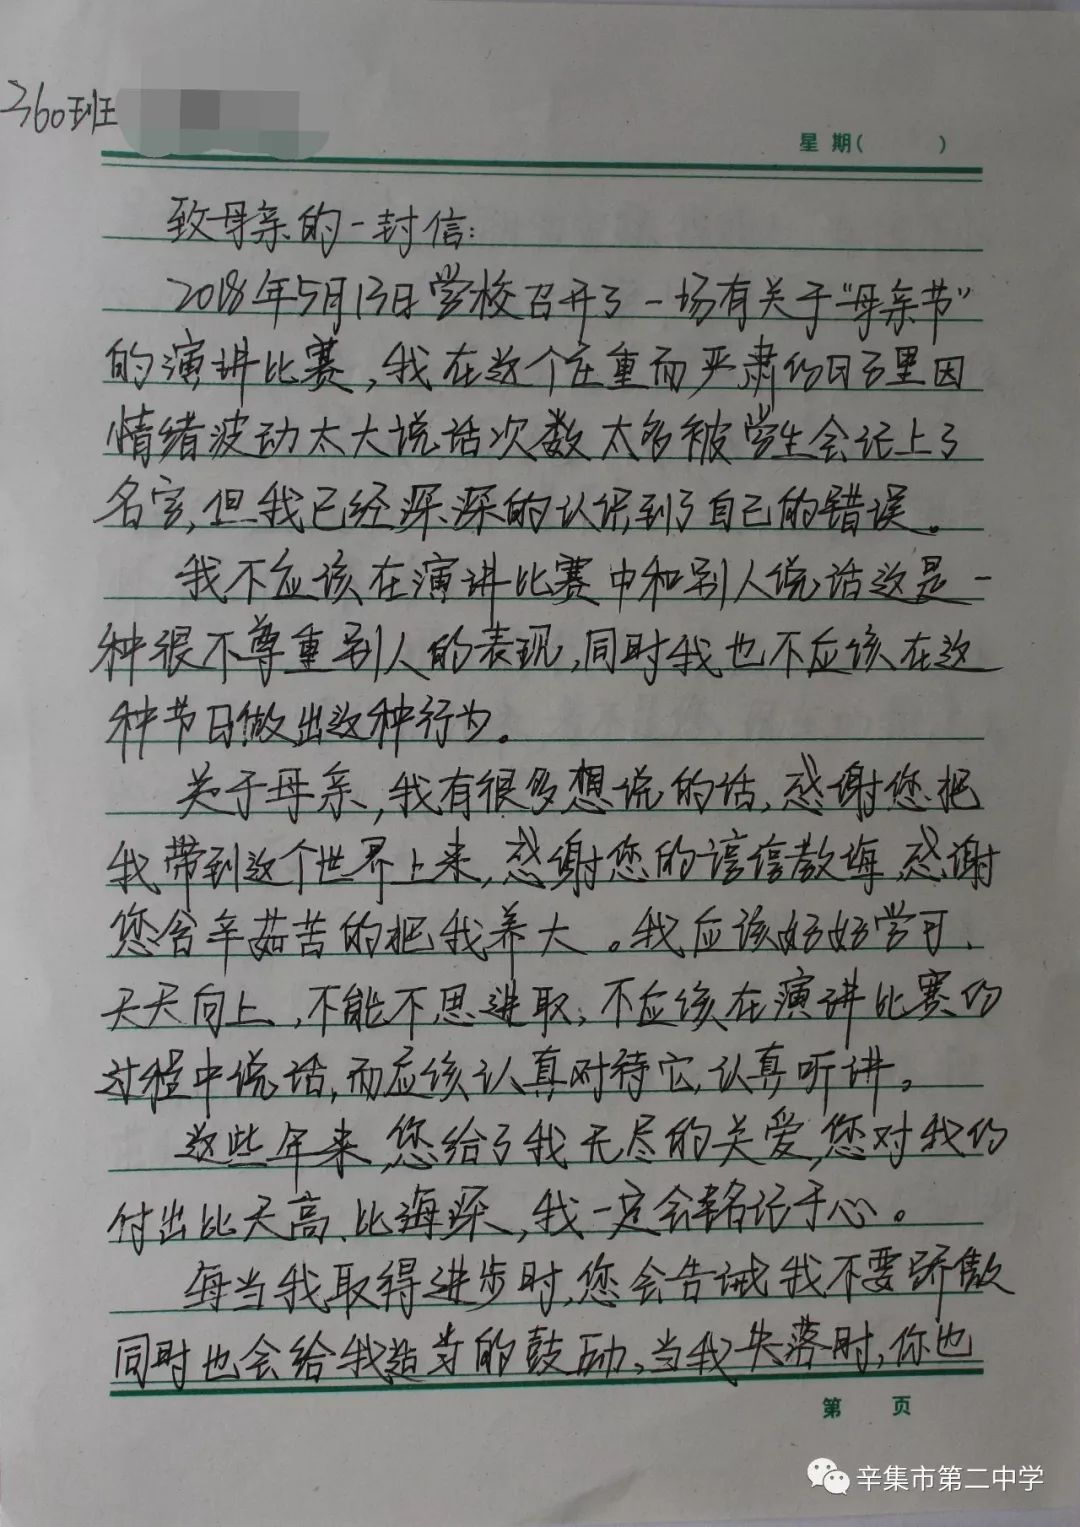 360班
星期(  )
致母亲的一封信:
2018年5月13日学校召开了一场有关于“母亲节”
的演讲比赛,我在这个庄重而严肃的日子里因
情绪波动太大说话次数太多被学生会记上了
名字,但我已经深深的认识到了自己的错误。
我不应该在演讲比赛中和别人说话这是一
种很不尊重别人的表现,同时我也不应该在这
种节日做出这种行为。
关于母亲,我有很多想说的话,感谢您把
我带到这个世界上来,感谢您的谆谆教诲,感谢
您含辛茹苦的把我养大。我应该好好学习、
天天向上,不能不思进取;不应该在演讲比赛的
过程中说话,而应该认真对待它,认真听讲。
这些年来,您给了我无尽的关爱,您对我的
付出比天高、比海深,我一定会铭记于心。
每当我取得进步时,您会告诫我不要骄傲
同时也会给我适当的鼓励,当我失落时,你也
第 页
辛集市第二中学